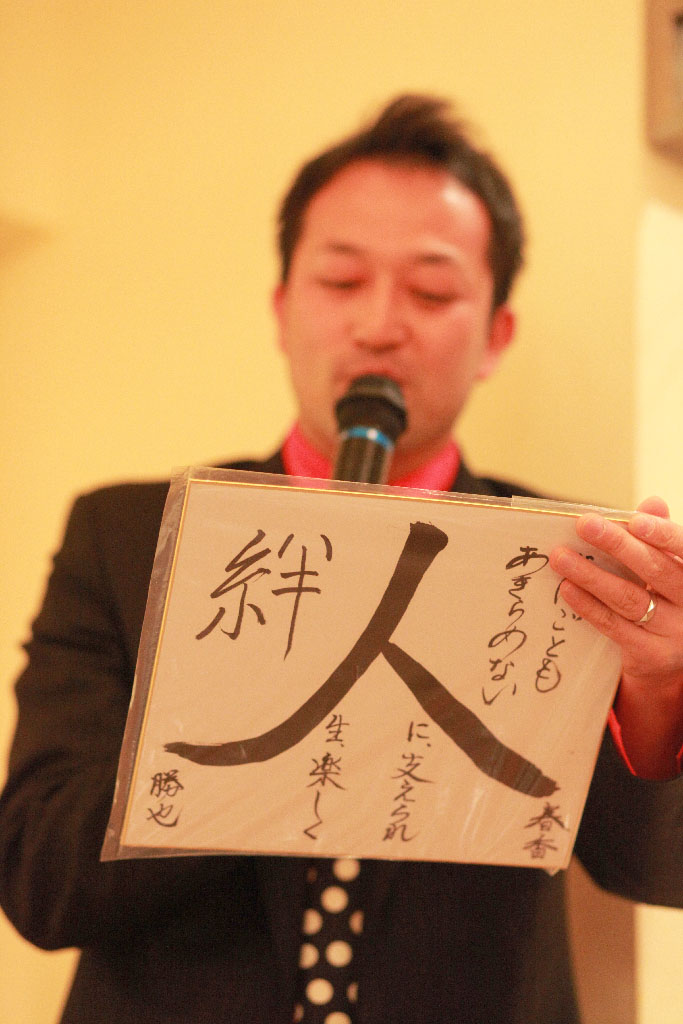 ごとも
あきらめない
人
に、支えられ
生、楽しく
絆
春香
勝也